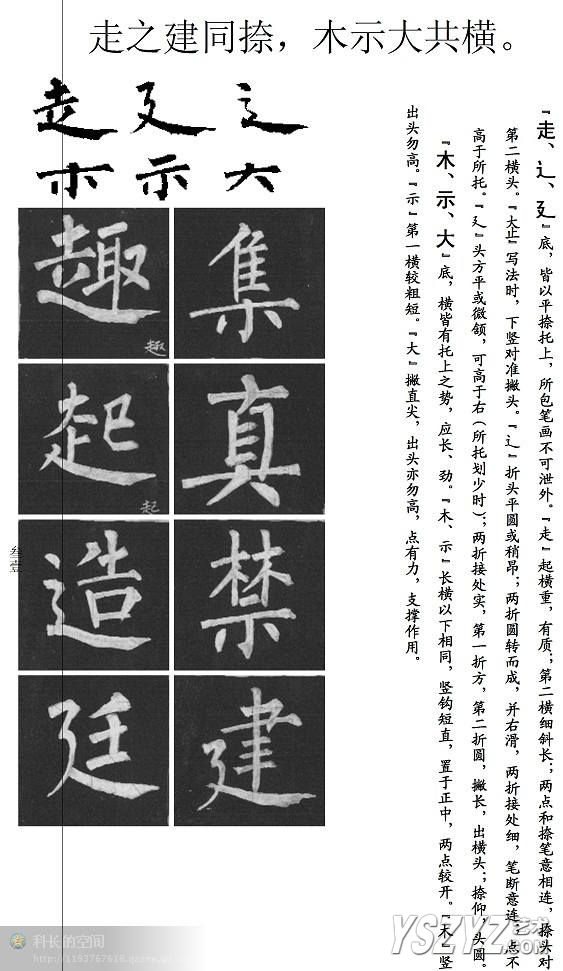 走之建同捺，木示大共横。
走 廴 辶
木 示 大
『走、辶、廴』底，皆以平捺托上，所包笔画不可泄外。『走』起横重，有质；第二横细斜长；两点和捺笔意相连，捺头对
第二横头。『大止』写法时，下竖对准撇头。『辶』折头平圆或稍昂；两折圆转而成，并右滑，两折接处细，笔断意连，点不
高于所托。『廴』头方平或微颔，可高于右（所托划少时）；两折接处实，第一折方，第二折圆，撇长，出横头；捺仰，头圆。
『木、示、大』底，横皆有托上之势，应长、劲。『木、示』长横以下相同，竖钩短直，置于正中，两点较开。『木』竖
出头勿高。『示』第一横较粗短。『大』撇直尖，出头亦勿高，点有力，支撑作用。
趣 集
趣
起 真
起
造 禁
廷 建
叁壹
科长的空间
YSZYZ艺术